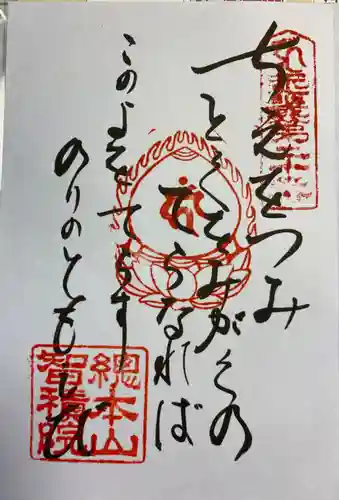 ちえをつみ
とくをみがくの
てらなれば
このよをてらす
のりのともしび
總本山
智積院